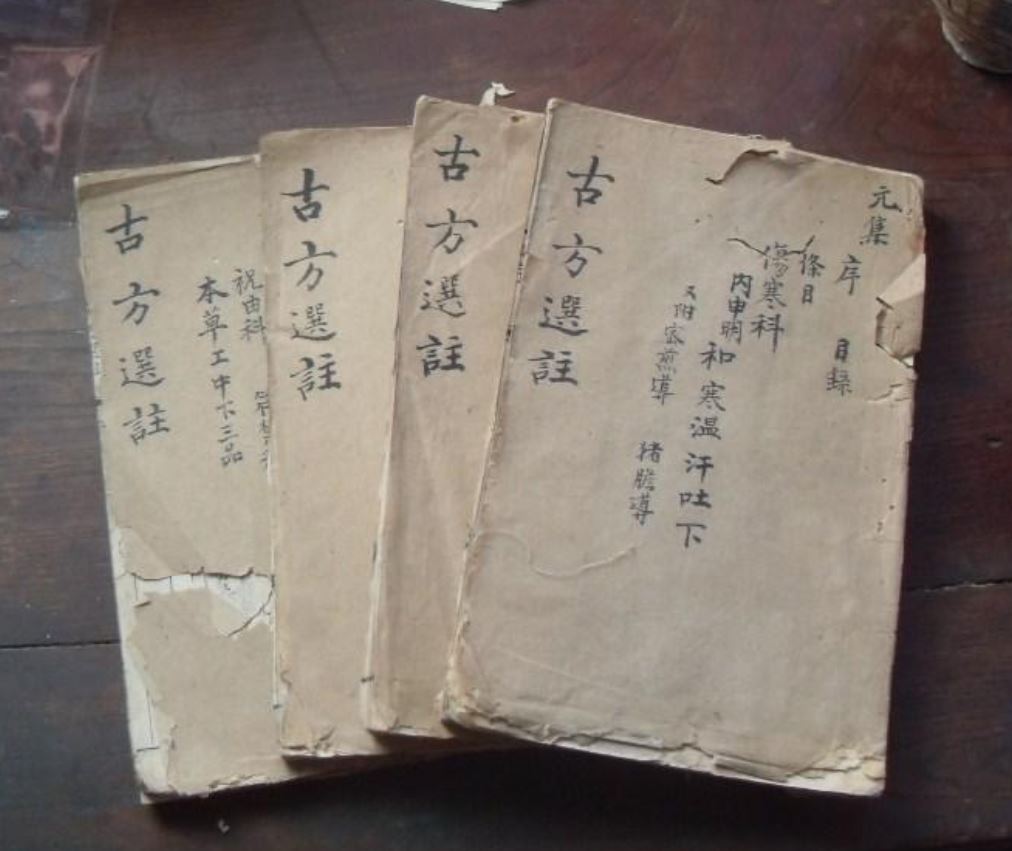 元集
序 目錄
條目
傷寒科
內申明
和寒温汗吐下
又附蜜煎導 猪膽導
古方選註
古方選註
古方選註
祝由科
本草上中下三品
古方選註